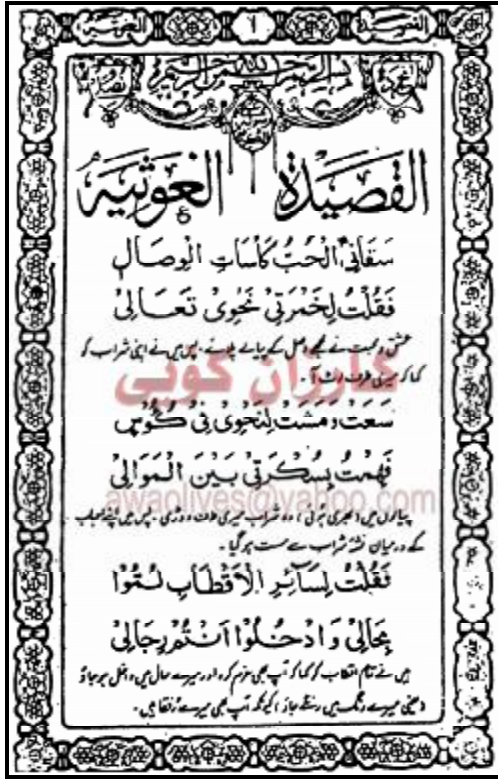 القصيدة ٦ الغوثية
بسم الله الرحمن الرحيم
القصيدة الغوثية
سَقَانِی الْحُبُّ كَأْسَاتِ الْوِصَالِ
فَقُلْتُ لِخَمْرَتِیْ نَحْوِیْ تَعَالِیْ
عشق و محبت نے مجھے وصل کے پیالے پلائے ۔ پس میں نے اپنی شراب کو
کہا کہ میری طرف لوٹ آ ۔
سَعَتْ وَمَشَتْ لِنَحْوِیْ فِیْ كُؤُوْسٍ
فَهِمْتُ بِسُكْرَتِیْ بَيْنَ الْمَوَالِیْ
awaolives@yahoo.com
پیالوں میں (بھری ہوئی) وہ شراب میری طرف دوڑی ۔ پس میں اپنے احباب
کے درمیان نشہ شراب سے مست ہو گیا ۔
فَقُلْتُ لِسَآئِرِ الْاَقْطَابِ لُمُّوْا
بِحَالِیْ وَادْخُلُوْا اَنْتُمْ رِجَالِیْ
میں نے تمام اقطاب کو کہا کہ آپ بھی عزم کرو اور میرے حال میں داخل ہو جاؤ
(یعنی میرے رنگ میں رنگے جاؤ) کیونکہ آپ بھی میرے رفقا ہیں ۔